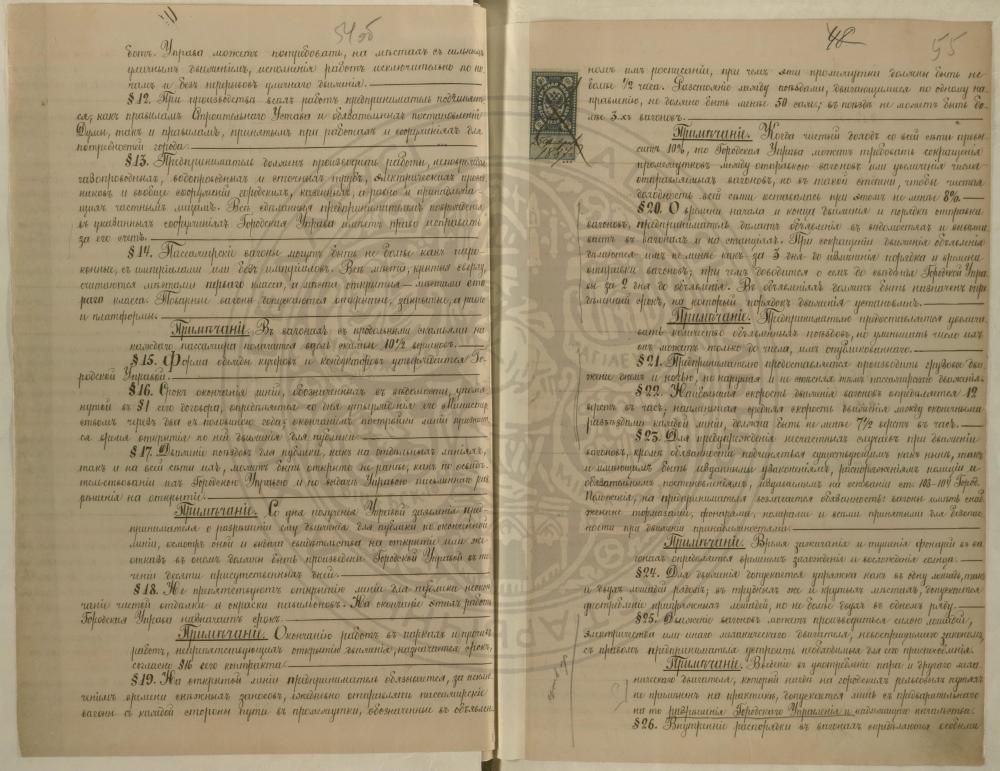 54 об
ботъ. Управа можетъ потребовать, на мѣстахъ съ сильнымъ
уличнымъ движеніемъ, исполненія работъ исключительно по но-
чамъ и безъ перерывовъ уличнаго движенія.
§12. При производствѣ всѣхъ работъ предприниматель подчиняет-
ся, какъ правиламъ Строительнаго Устава и обязательныхъ постановленій
Думы, такъ и правиламъ, принятымъ при работахъ и сооруженіяхъ для
потребностей города.
§13. Предприниматель долженъ производить работы, неповреждая
газопроводныхъ, водопроводныхъ и сточныхъ трубъ, электрическихъ провод-
никовъ и вообще сооруженій городскихъ, казенныхъ, а равно и принадлежа-
щихъ частнымъ лицамъ. Всѣ сдѣланныя предпринимателемъ поврежденія
въ указанныхъ сооруженіяхъ Городская Управа имѣетъ право исправить
за его счетъ.
§14. Пассажирскіе вагоны могутъ быть не болѣе какъ паро-
конные, съ имперіалами или безъ имперіаловъ. Всѣ мѣста, крытыя сверху,
считаются мѣстами перваго класса, а мѣста открытыя — мѣстами вто-
раго класса. Товарные вагоны допускаются открытые, закрытые, а равно
и платформы.
Примѣчаніе. Въ вагонахъ съ продольными скамьями на
каждаго пассажира полагается вдоль скамьи 10½ вершковъ.
§15. Форма одежды кучеровъ и кондукторовъ утверждается Го-
родской Управой.
§16. Срокъ окончанія линій, обозначенныхъ въ вѣдомости, упомя-
нутой въ §1 сего договора, опредѣляется со дня утвержденія его Министер-
ствомъ черезъ два съ половиною года; окончаніемъ постройки линіи признает-
ся время открытія по ней движенія для публики.
§17. Движеніе поѣздовъ для публики, какъ на отдѣльныхъ линіяхъ,
такъ и на всей сѣти ихъ, можетъ быть открыто не ранѣе, какъ по освидѣ-
тельствованіи ихъ Городскою Управою и по выдачѣ Управою письменнаго раз-
рѣшенія на открытіе.
Примѣчаніе. Со дня полученія Управой заявленія пред-
принимателя о разрѣшеніи ему движенія для публики по оконченной
линіи, осмотръ оной и выдача свидѣтельства на открытіе или же
отказъ въ ономъ должны быть произведены Городской Управой въ те-
ченіи десяти присутственныхъ дней.
§18. Не препятствуютъ открытію линіи для публики неокон-
чаніе чистой отдѣлки и окраски павильоновъ. На окончаніе этихъ работъ
Городская Управа назначаетъ срокъ.
Примѣчаніе. Окончанію работъ въ паркахъ и прочихъ
работъ, непрепятствующихъ открытію движенія, назначается срокъ,
согласно §16 сего контракта.
§19. На открытой линіи предприниматель обязывается, за исклю-
ченіемъ времени снѣжныхъ заносовъ, ежедневно отправлять пассажирскіе
вагоны съ каждой стороны пути въ промежутки, обозначенные въ объявлен-
48
55
номъ имъ росписаніи, при чемъ эти промежутки должны быть не
болѣе ½ часа. Разстояніе между поѣздами, движущимися по одному на-
правленію, не должно быть менѣе 50 саж; въ поѣздѣ не можетъ быть бо-
лѣе 3-хъ вагоновъ.
Примѣчаніе. Когда чистый доходъ со всей сѣти превы-
ситъ 10%, то Городская Управа можетъ требовать сокращенія
промежутковъ между отправкою вагоновъ или увеличенія числа
отправляемыхъ вагоновъ, но въ такой степени, чтобы чистая
доходность всей сѣти оставалась при этомъ не менѣе 8%.
§20. О времени начала и конца движенія и порядкѣ отправки
вагоновъ, предприниматель дѣлаетъ объявленія въ вѣдомостяхъ и вывѣши-
ваетъ въ вагонахъ и на станціяхъ. При сокращеніи движенія объявленія
дѣлаются имъ не менѣе какъ за 3 дня до измѣненія порядка и времени
отправки вагоновъ; при чемъ доводится о семъ до свѣдѣнія Городской Упра-
вы за 2 дня до объявленія. Въ объявленіяхъ долженъ быть назначенъ опре-
дѣленный срокъ, на который порядокъ движенія установленъ.
Примѣчаніе. Предпринимателю предоставляется увеличи-
вать количество объявленныхъ поѣздовъ, но уменьшать число ихъ
онъ можетъ только до числа, имъ опубликованнаго.
§21. Предпринимателю предоставляется производить грузовое дви-
женіе днемъ и ночью, но нарушая и не стѣсняя тѣмъ пассажирскаго движенія.
§22. Наибольшая скорость движенія вагоновъ опредѣляется 12
верстъ въ часъ; наименьшая средняя скорость движенія между оконечными
разъѣздами каждой линіи, должна быть не менѣе 7½ верстъ въ часъ.
§23. Для предупрежденія несчастныхъ случаевъ при движеніи
вагоновъ, кромѣ обязанности подчиняться существующимъ какъ нынѣ, такъ
и имѣющимъ быть изданными узаконеніямъ, распоряженіямъ полиціи и
обязательнымъ постановленіямъ, издаваемымъ на основаніи ст 103-104 Город.
Положенія, на предпринимателя возлагается обязанность: вагоны имѣть снаб-
женные тормазами, фонарями, номерами и всѣми принятыми для безопас-
ности при движеніи принадлежностями.
Примѣчаніе. Время зажиганія и тушенія фонарей въ ва-
гонахъ опредѣляется временемъ захожденія и восхожденія солнца.
§24. Для движенія допускается упряжка какъ въ одну лошадь, такъ
и двухъ лошадей рядомъ; въ трудныхъ же и крутыхъ мѣстахъ, допускается
употребленіе припряжныхъ лошадей, но не болѣе двухъ въ одномъ ряду.
§25. Движеніе вагоновъ можетъ производиться силою лошадей,
электричества или инаго механическаго двигателя, невоспрещеннаго закономъ,
съ правомъ предпринимателя устроить необходимыя для сего приспособленія.
Примѣчаніе. Введеніе въ употребленіе пара и другаго меха-
ническаго двигателя, который нигдѣ на городскихъ рельсовыхъ путяхъ
не примѣненъ на практикѣ, допускается лишь съ предварительнаго
на то разрѣшенія Городскаго Управленія и надлежащаго начальства.
§26. Внутренніе распорядки въ вагонахъ опредѣляются особыми